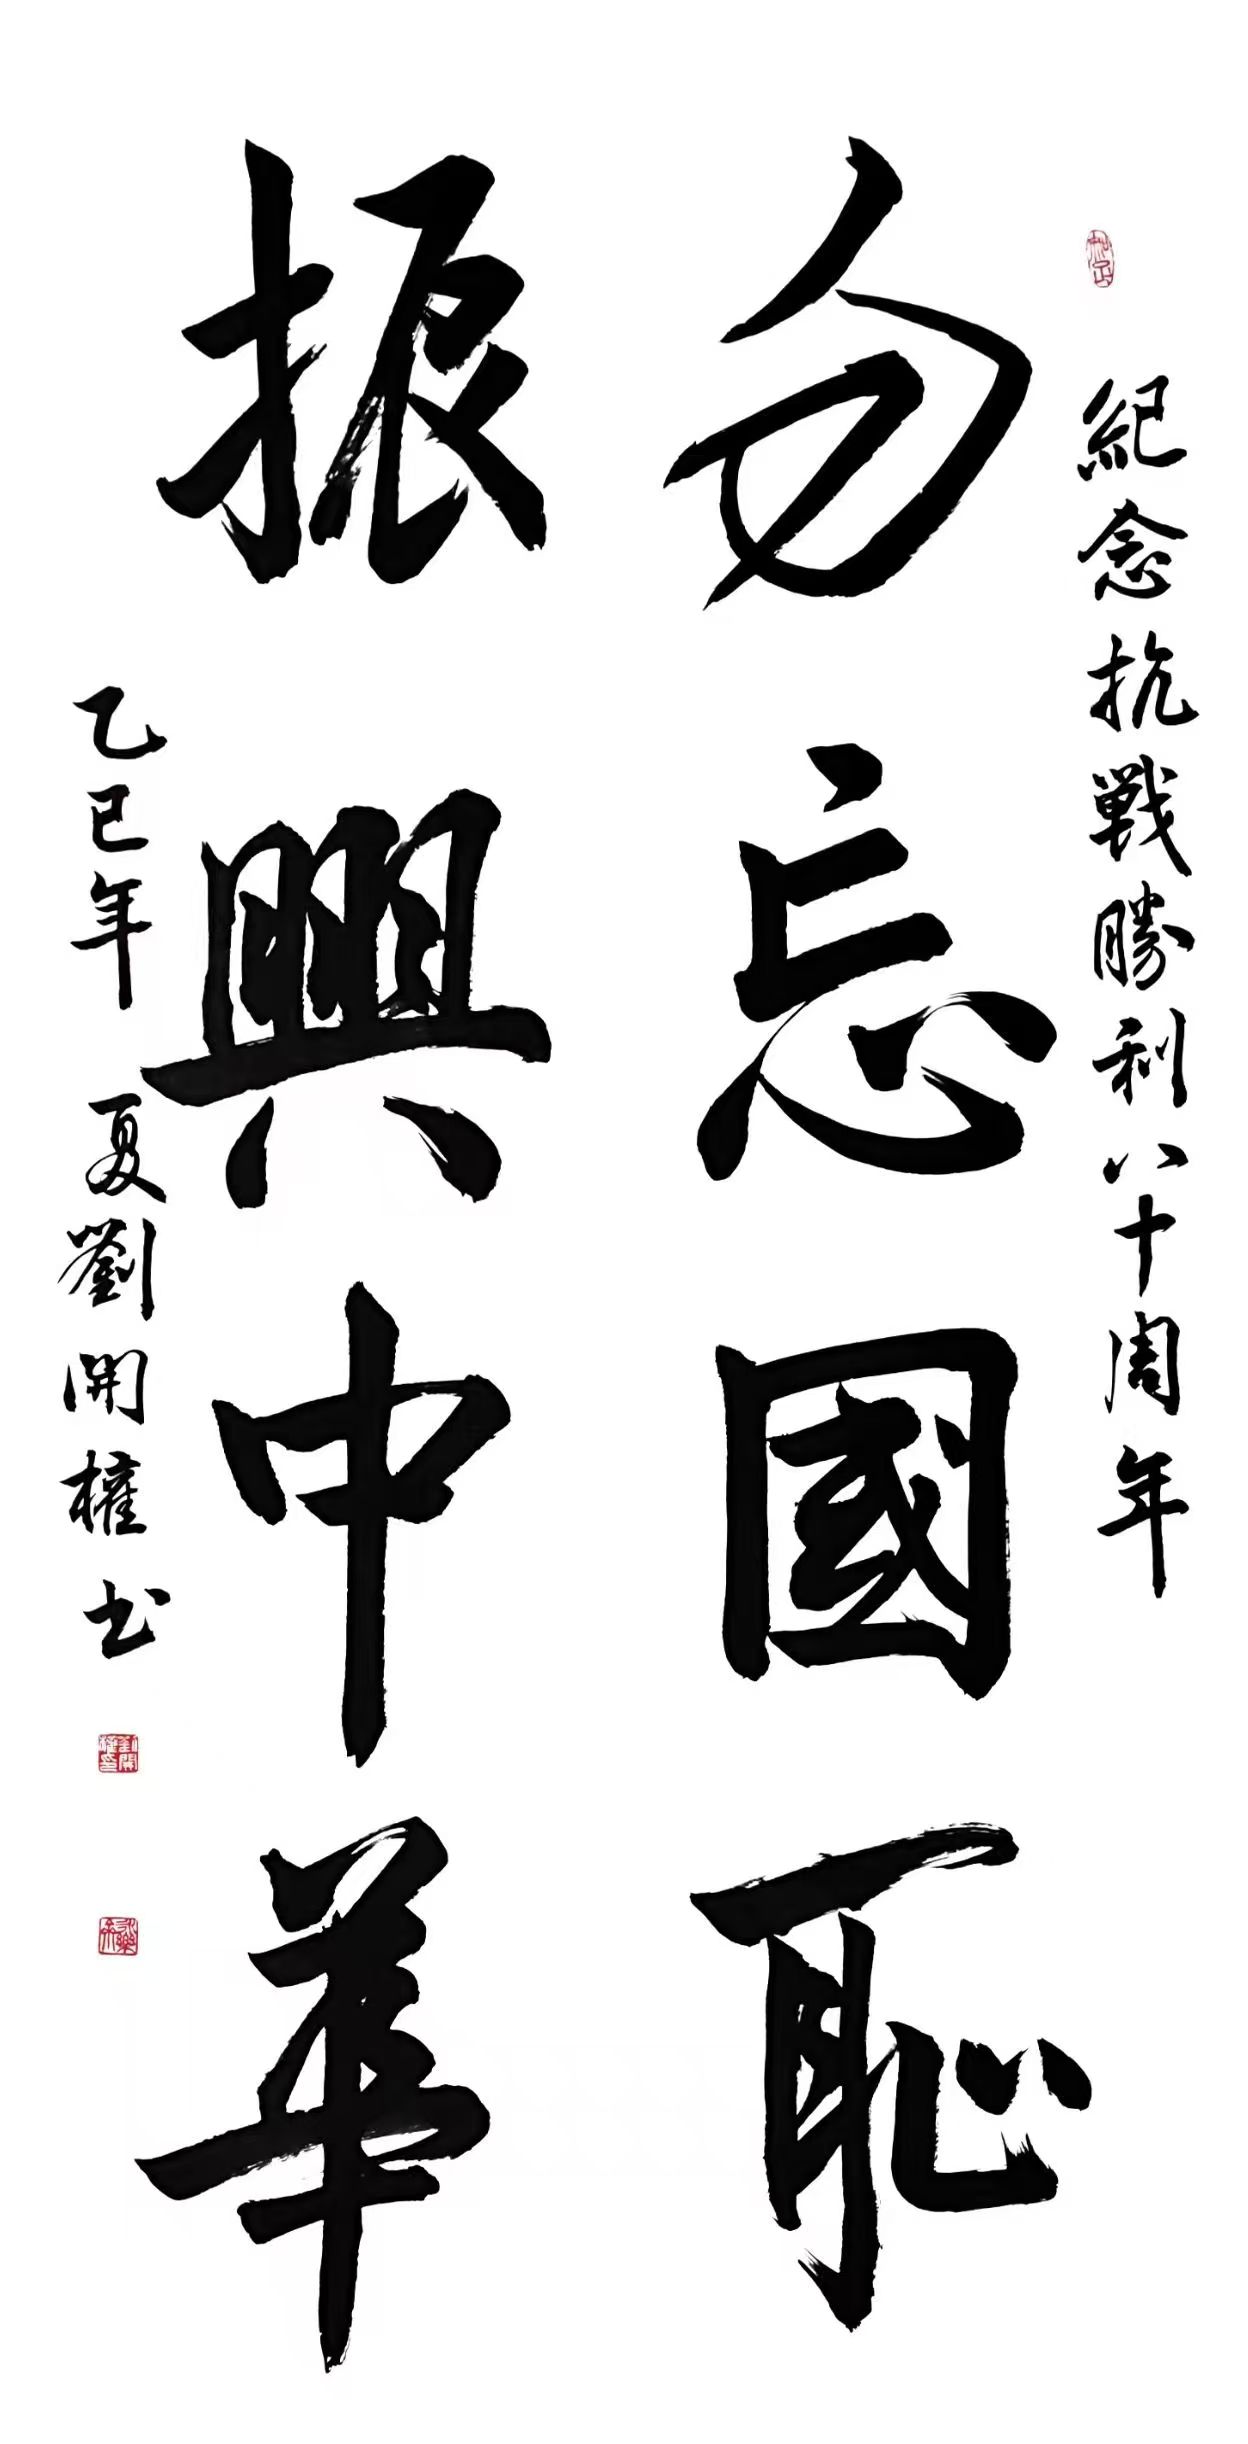 紀念抗戰勝利八十周年
勿忘國恥
振興中華
乙巳年夏劉開權书